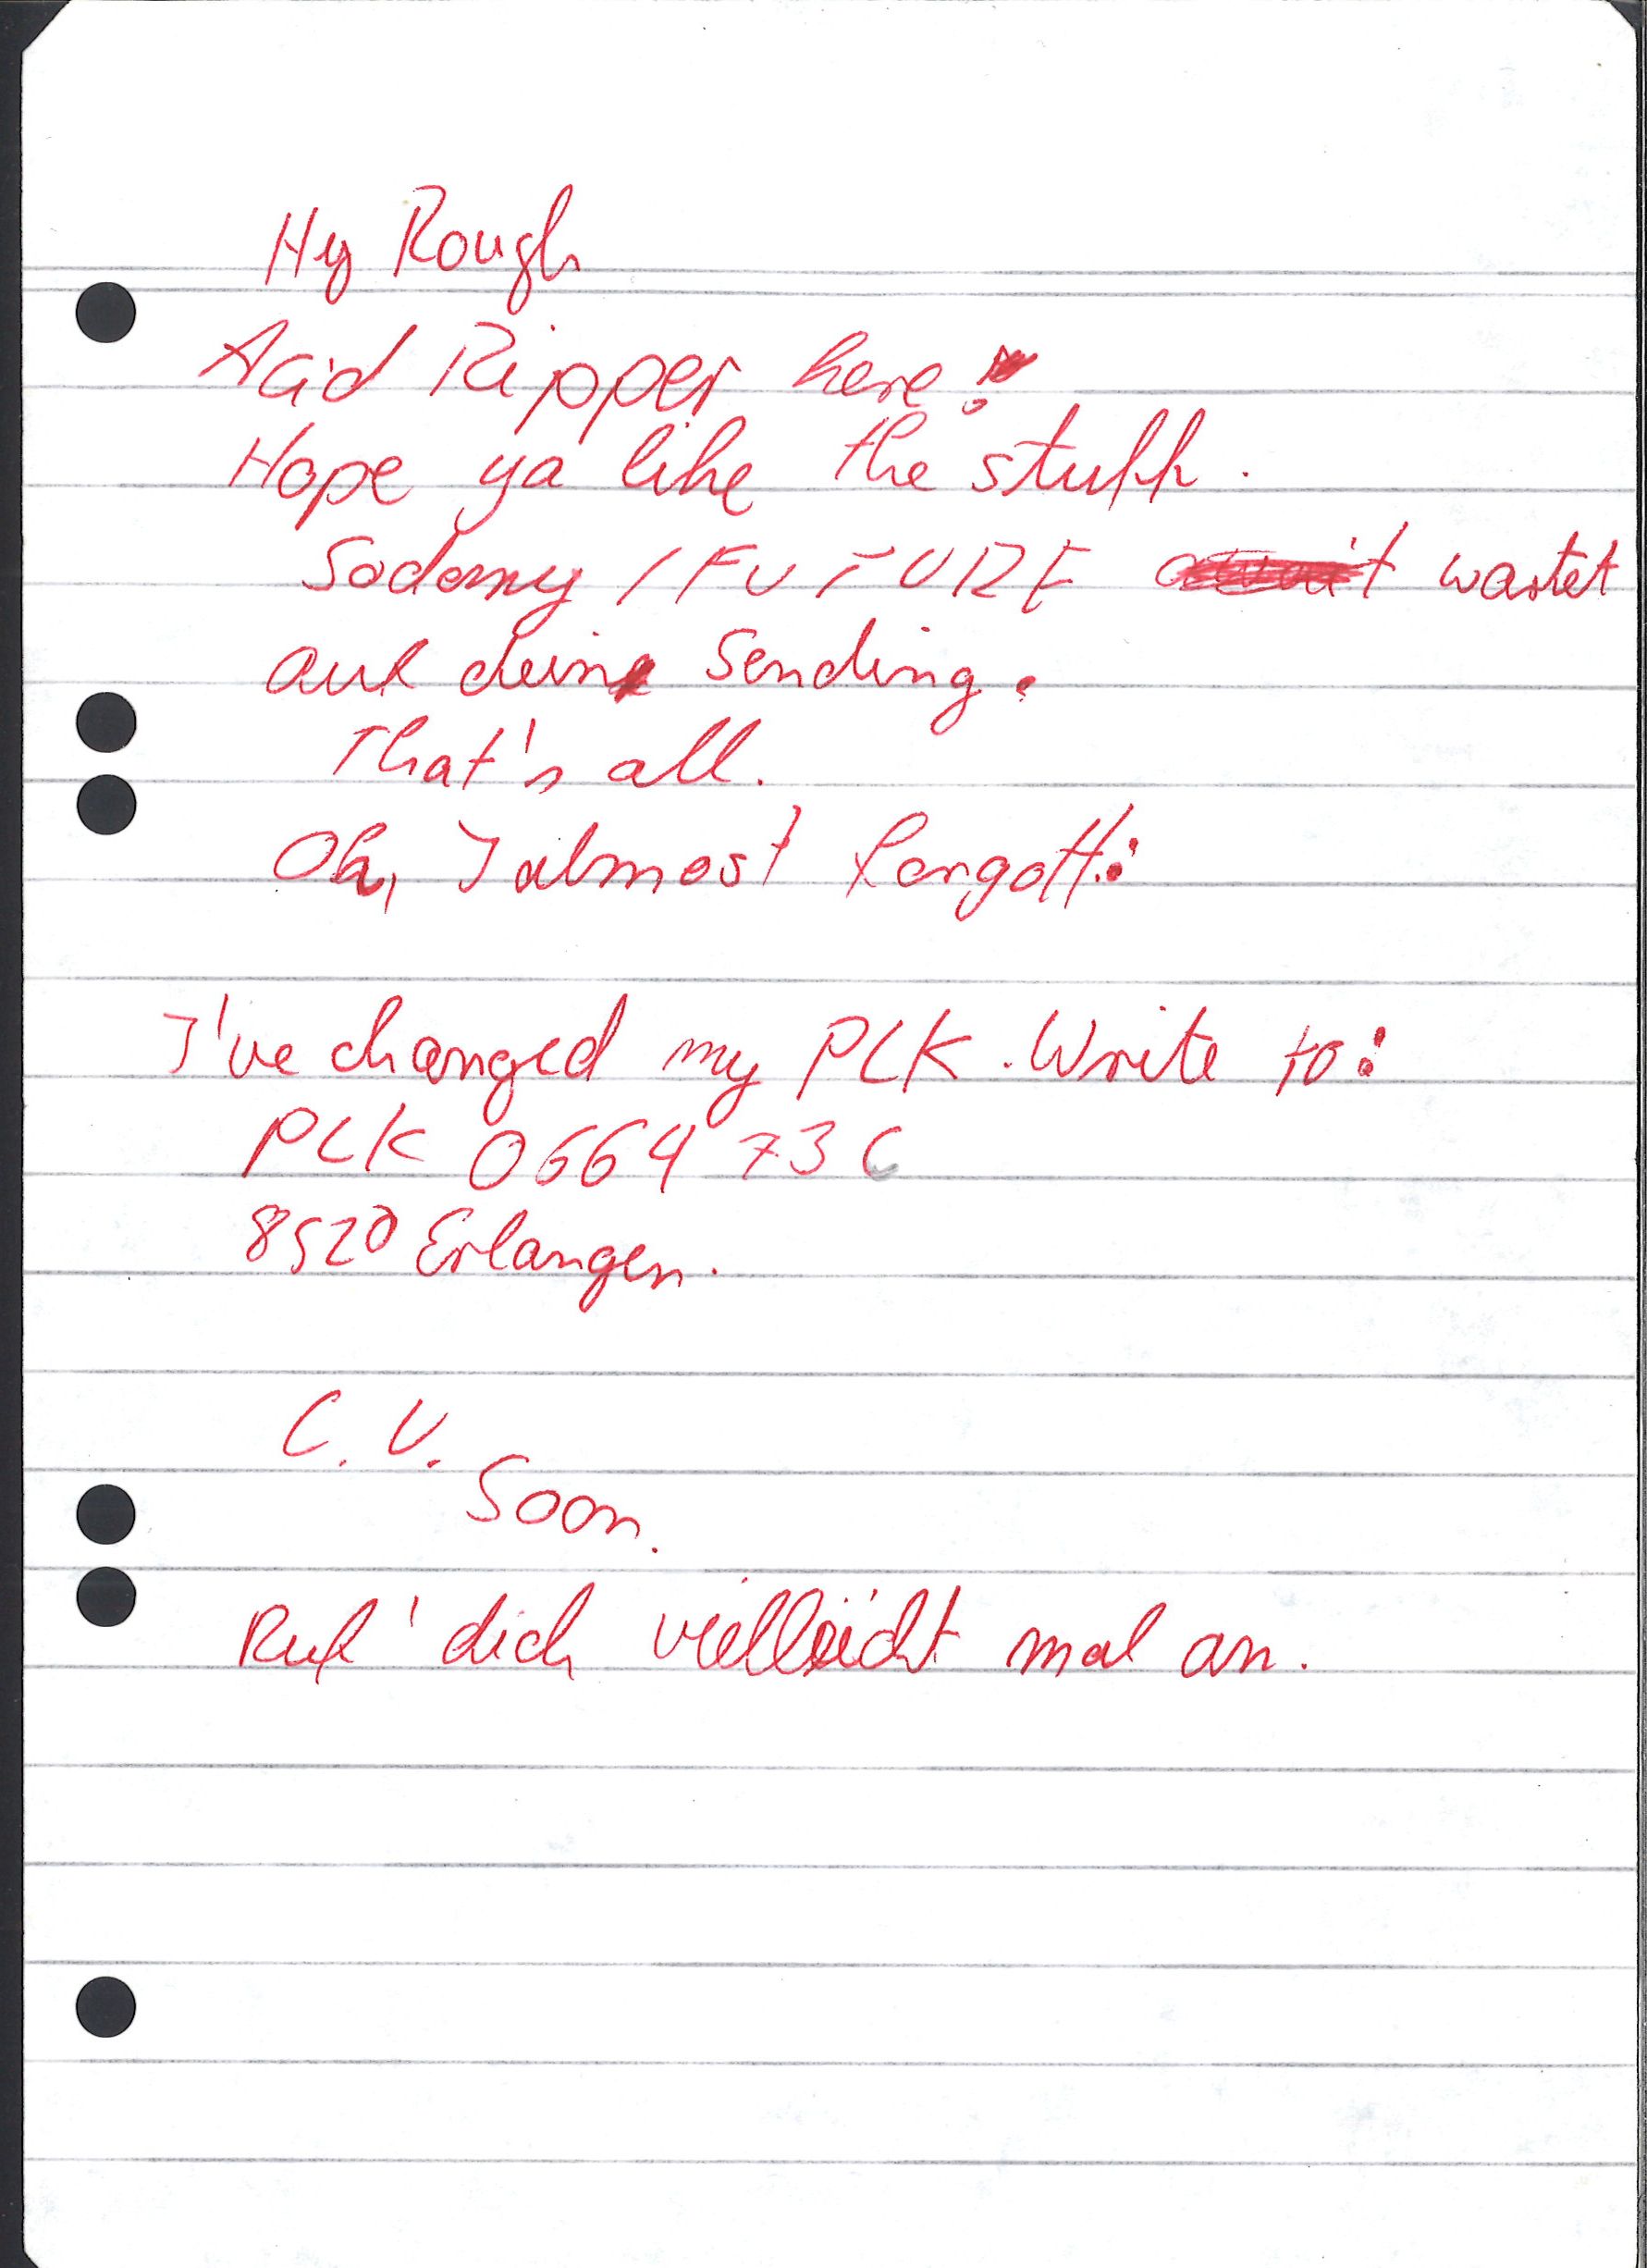 Hy Rough
Acid Ripper here!
Hope ya like the stuff.
Sodomy / FUTURE wartet
auf deine Sending.
That's all.
Oh, I almost forgott:
I've changed my PLK. Write to:
PLK 066473C
8520 Erlangen.
C. U.
Soon.
Ruf' dich vielleicht mal an.